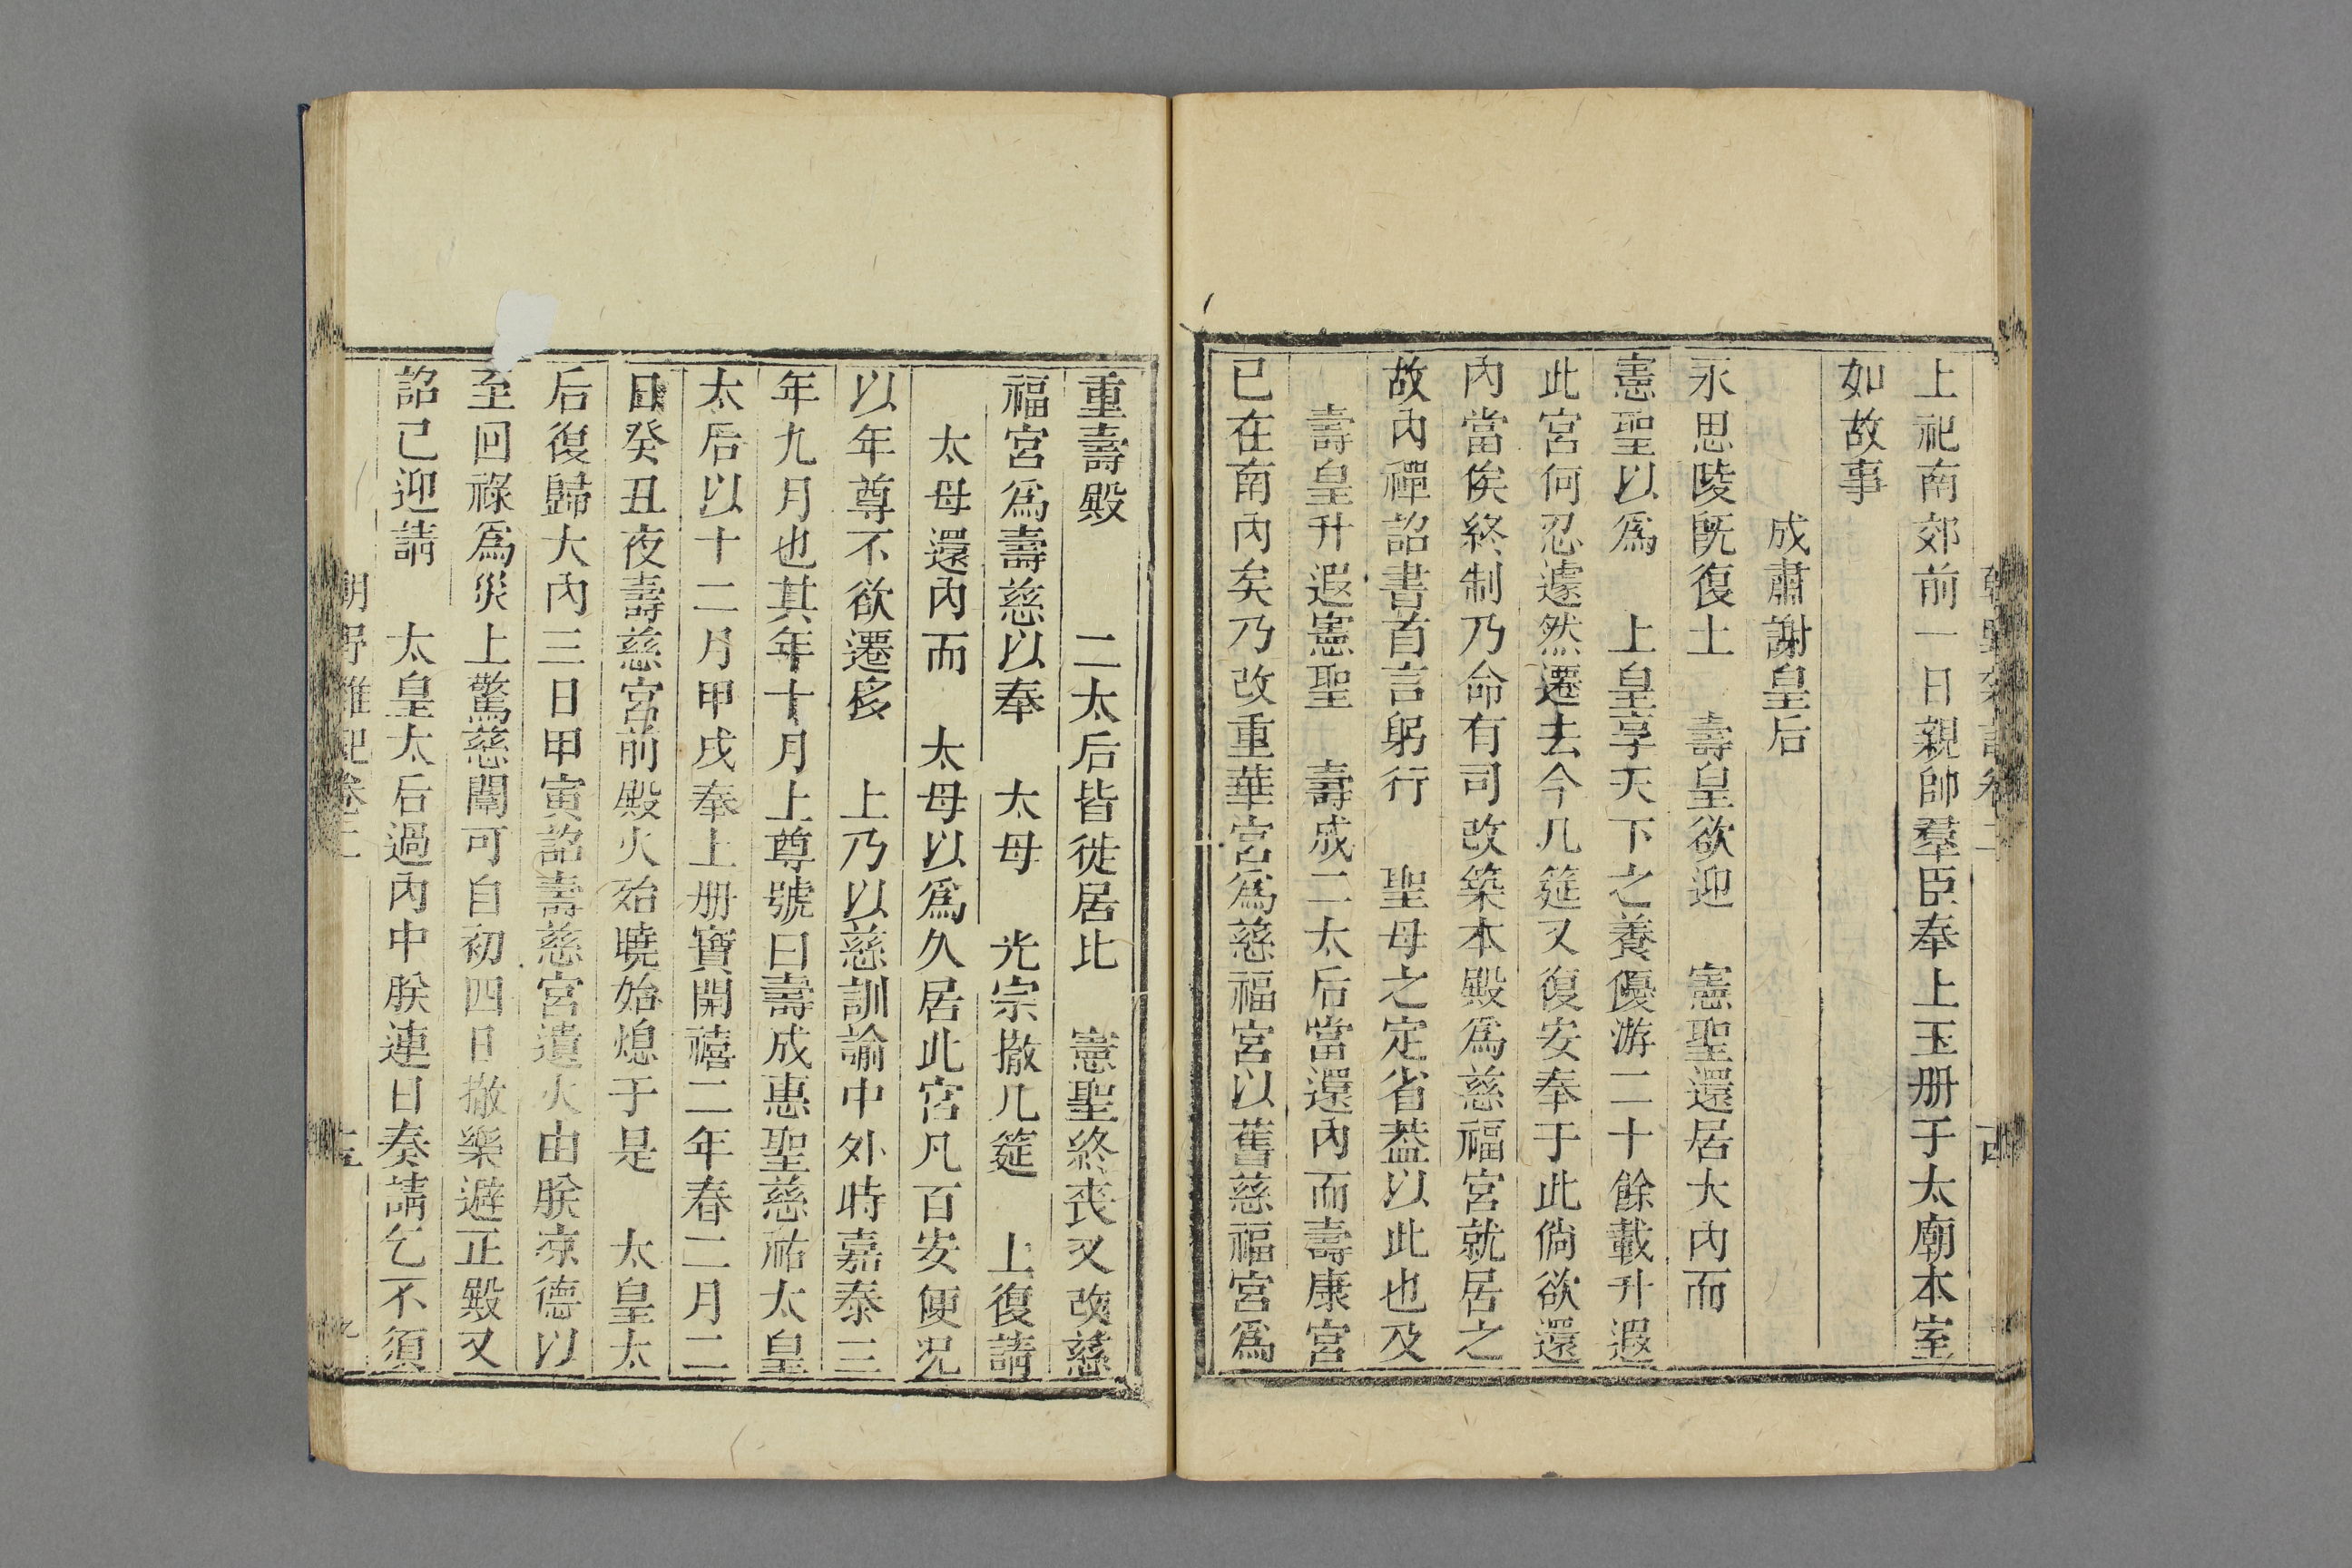 上祀南郊前一日親帥羣臣奉上玉册于太廟本室
如故事
成肅謝皇后
永思陵既復土　壽皇欲迎　憲聖還居大內而
憲聖以爲　上皇享天下之養優游二十餘載升遐
此宮何忍遽然遷去今几筵又復安奉于此倘欲還
內當俟終制乃命有司改築本殿爲慈福宮就居之
故內禪詔書首言躬行　聖母之定省葢以此也及
壽皇升遐憲聖　壽成二太后當還內而壽康宮
已在南內矣乃改重華宮爲慈福宮以舊慈福宮爲
重壽殿　二太后皆徙居比　憲聖終丧又改慈
福宮爲壽慈以奉　太母　光宗撤几筵　上復請
太母還內而　太母以爲久居此宮凡百安便况
以年尊不欲遷移　上乃以慈訓諭中外時嘉泰三
年九月也其年十月上尊號曰壽成惠聖慈祐太皇
太后以十二月甲戌奉上册寶開禧二年春二月二
日癸丑夜壽慈宮前殿火殆曉始熄于是　太皇太
后復歸大內三日甲寅詔壽慈宮遺火由朕凉德以
至回祿爲災上驚慈闈可自初四日撤樂避正殿又
詔已迎請　太皇太后過內中朕連日奏請乞不須
朝野雜記卷二